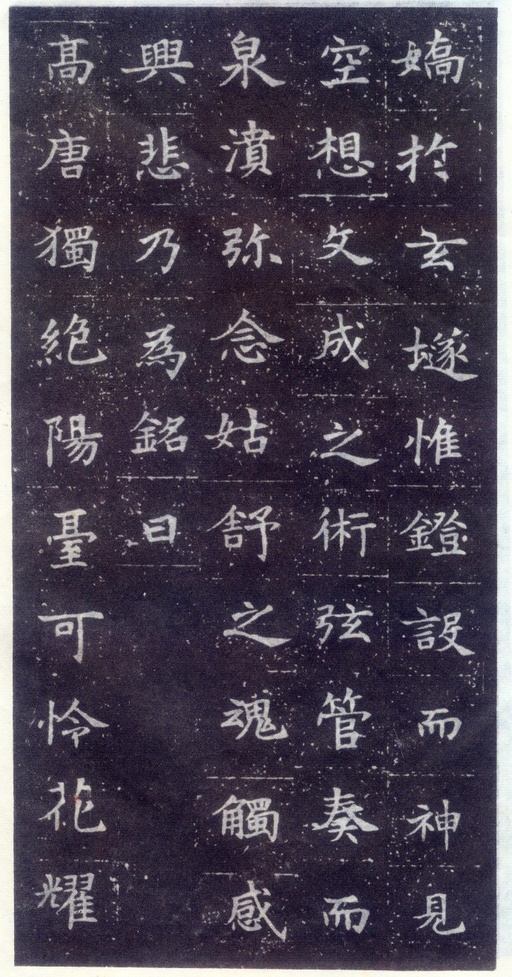 嬌於玄墜惟鐙設而神見
空想文成之術弦管奏而
泉濆弥念姑舒之魂觸感
興悲乃為銘曰
高唐獨絶陽臺可怜花耀